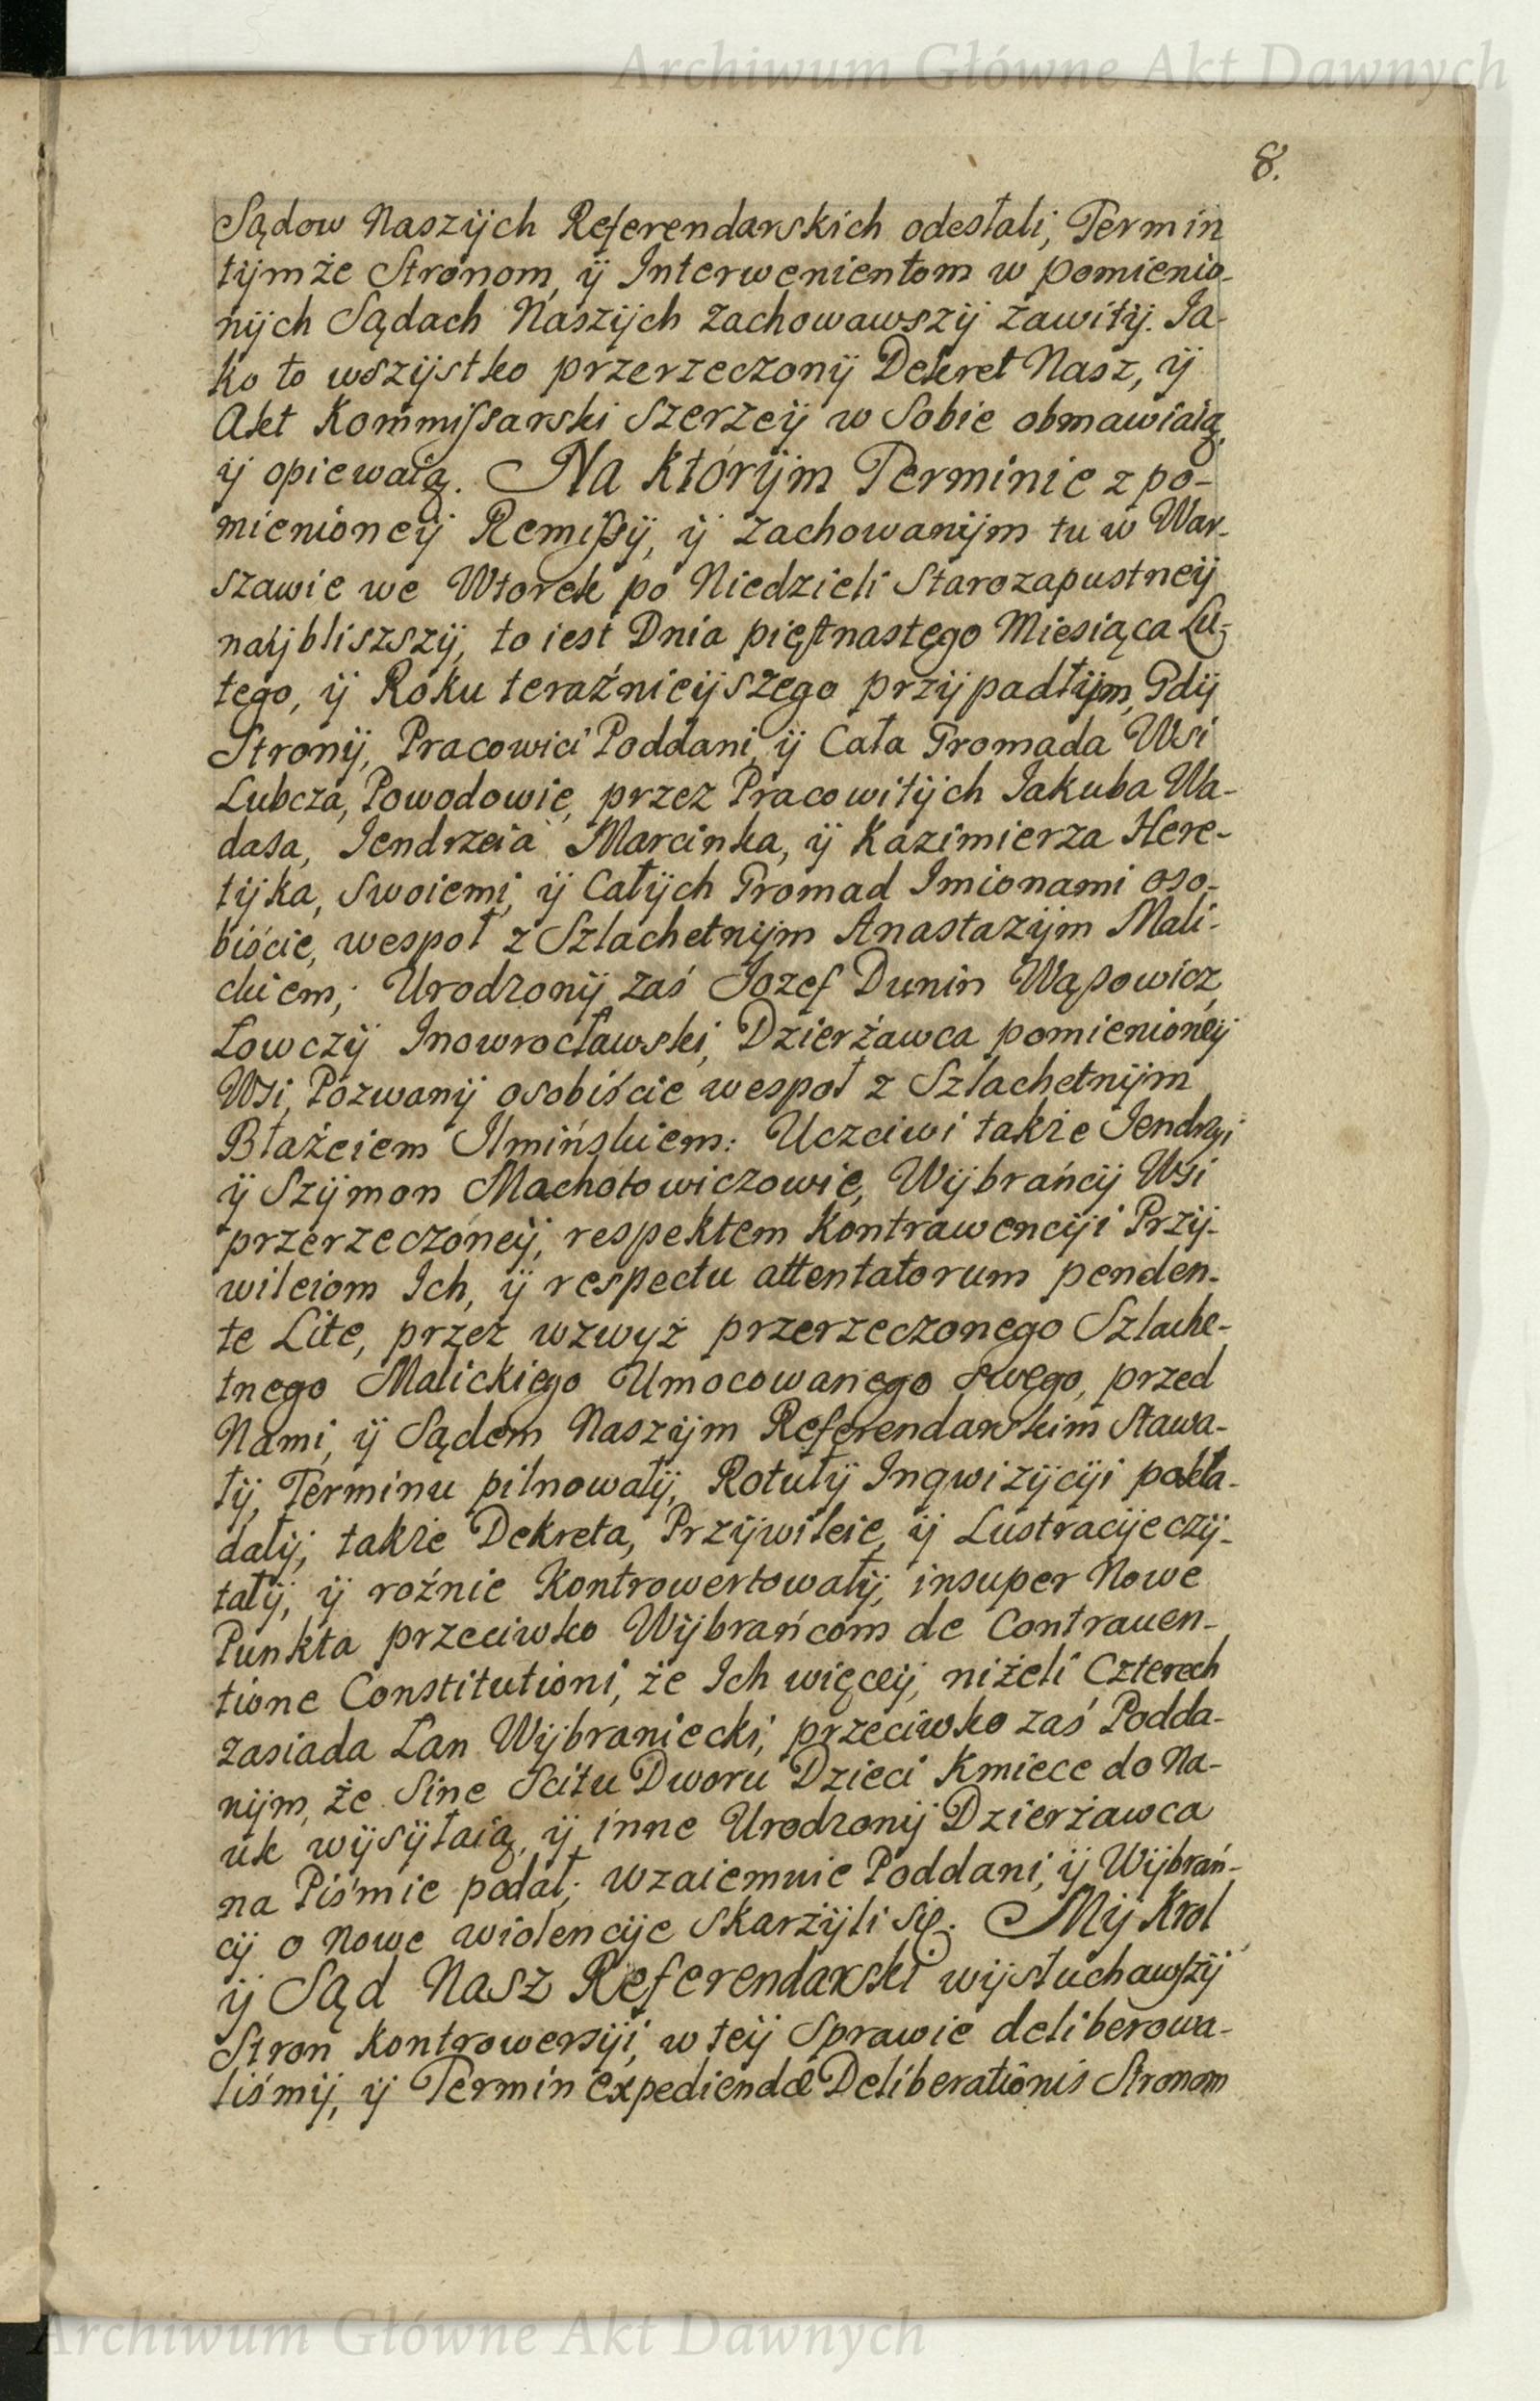 Archiwum Główne Akt Dawnych
8.
Sądow Naszÿch Referendarskich odesłali, Termin
tÿmże Stronom, ÿ Interwenientom w pomienio-
nÿch Sądach Naszÿch zachowawszÿ zawitÿ. Ja-
ko to wszÿstko przerzeczonÿ Dekret Nasz, ÿ
Akt Kommissarski szerzeÿ w Sobie obmawiaią,
ÿ opiewaią. Na którÿm Terminie z po-
mienioneÿ Remissÿ, ÿ zachowanÿm tu w War-
szawie we Wtorek po Niedzieli Starozapustneÿ
naÿbliszszÿ, to iest Dnia piętnastego Miesiąca Lu-
tego, ÿ Roku teraźnieÿszego przÿpadłÿm, Gdÿ
Stronÿ, Pracowici Poddani, ÿ Cała Gromada Wsi
Lubcza, Powodowie, przez Pracowitÿch Jakuba Wa-
dasa, Jendrzeia Marcinka, ÿ Kazimierza Here-
tÿka, swoiemi, ÿ Całÿch Gromad Imionami oso-
biście, wespoł z Szlachetnÿm Anastazÿm Mali-
ckiem; Urodzonÿ zaś Jozef Dunin Wąsowicz,
Łowczÿ Inowrocławski, Dzierżawca pomienioneÿ
Wsi, Pozwanÿ osobiście wespoł z Szlachetnÿm
Błażeiem Ilmińskiem: Uczciwi także Jendrzi
ÿ Szÿmon Machotowiczowie, Wÿbrańcÿ Wsi
przerzeczoneÿ, respektem Kontrawencÿi Przÿ-
wileiom Ich, ÿ respectu attentatorum penden-
te Lite, przez wzwyż przerzeczonego Szlache-
tnego Malickiego Umocowanego swego, przed
Nami, ÿ Sądem Naszÿm Referendarskim stawa-
łÿ, Terminu pilnowałÿ, Rotułÿ Inqwizÿcÿi pokła-
dałÿ, także Dekreta, Przÿwileie, ÿ Lustracÿe czÿ-
tałÿ, ÿ roźnie Kontrowertowałÿ, insuper Nowe
Punkta przeciwko Wÿbrańcom de Contrauen-
tione Constitutioni, że Ich więceÿ, niżeli Czterech
zasiada Łan Wÿbraniecki; przeciwko zaś Podda-
nÿm, że Sine Scitu Dworu Dzieci Kmiece do Na-
uk wÿsÿłaią, ÿ inne Urodzonÿ Dzierżawca
na Piśmie podał; wzaiemnie Poddani, ÿ Wÿbrań-
cÿ o nowe wiolencÿe skarżÿli się. Mÿ Krol
ÿ Sąd Nasz Referendarski wÿsłuchawszÿ
Stron kontrowersÿi, w teÿ Sprawie deliberowa-
liśmÿ, ÿ Termin expediendæ Deliberationis Stronom
Archiwum Główne Akt Dawnych